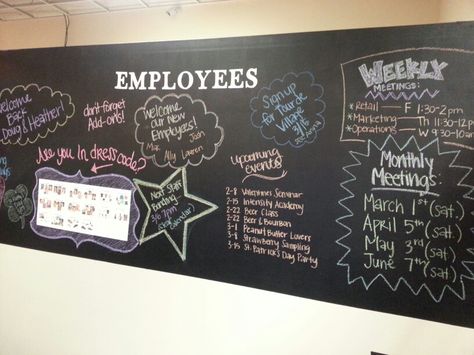 EMPLOYEES
Welcome
Back
Doug & Heather!
don't forget
Add-ons!
Welcome
our New
Employees!
Max
Josh
Ally
Lauren
Sign up
for Tour de
Village
3/15
Are you in dress code?
Next Staff
Bonding:
3/6 7pm
upcoming
events
2-8 Valentines Seminar
2-15 Intensity Academy
2-22 Beer Class
2-22 Beer & Bourbon
3-1 Peanut Butter Lovers
3-8 Strawberry Sampling
3-15 St. Patrick's Day Party
Weekly
MEETINGS:
*Retail F 1:30-2pm
*Marketing Th 11:30-12p
*Operations W 9:30-10a
Monthly
Meetings:
March 1st (sat.)
April 5th (sat)
May 3rd (sat)
June 7th (sat)